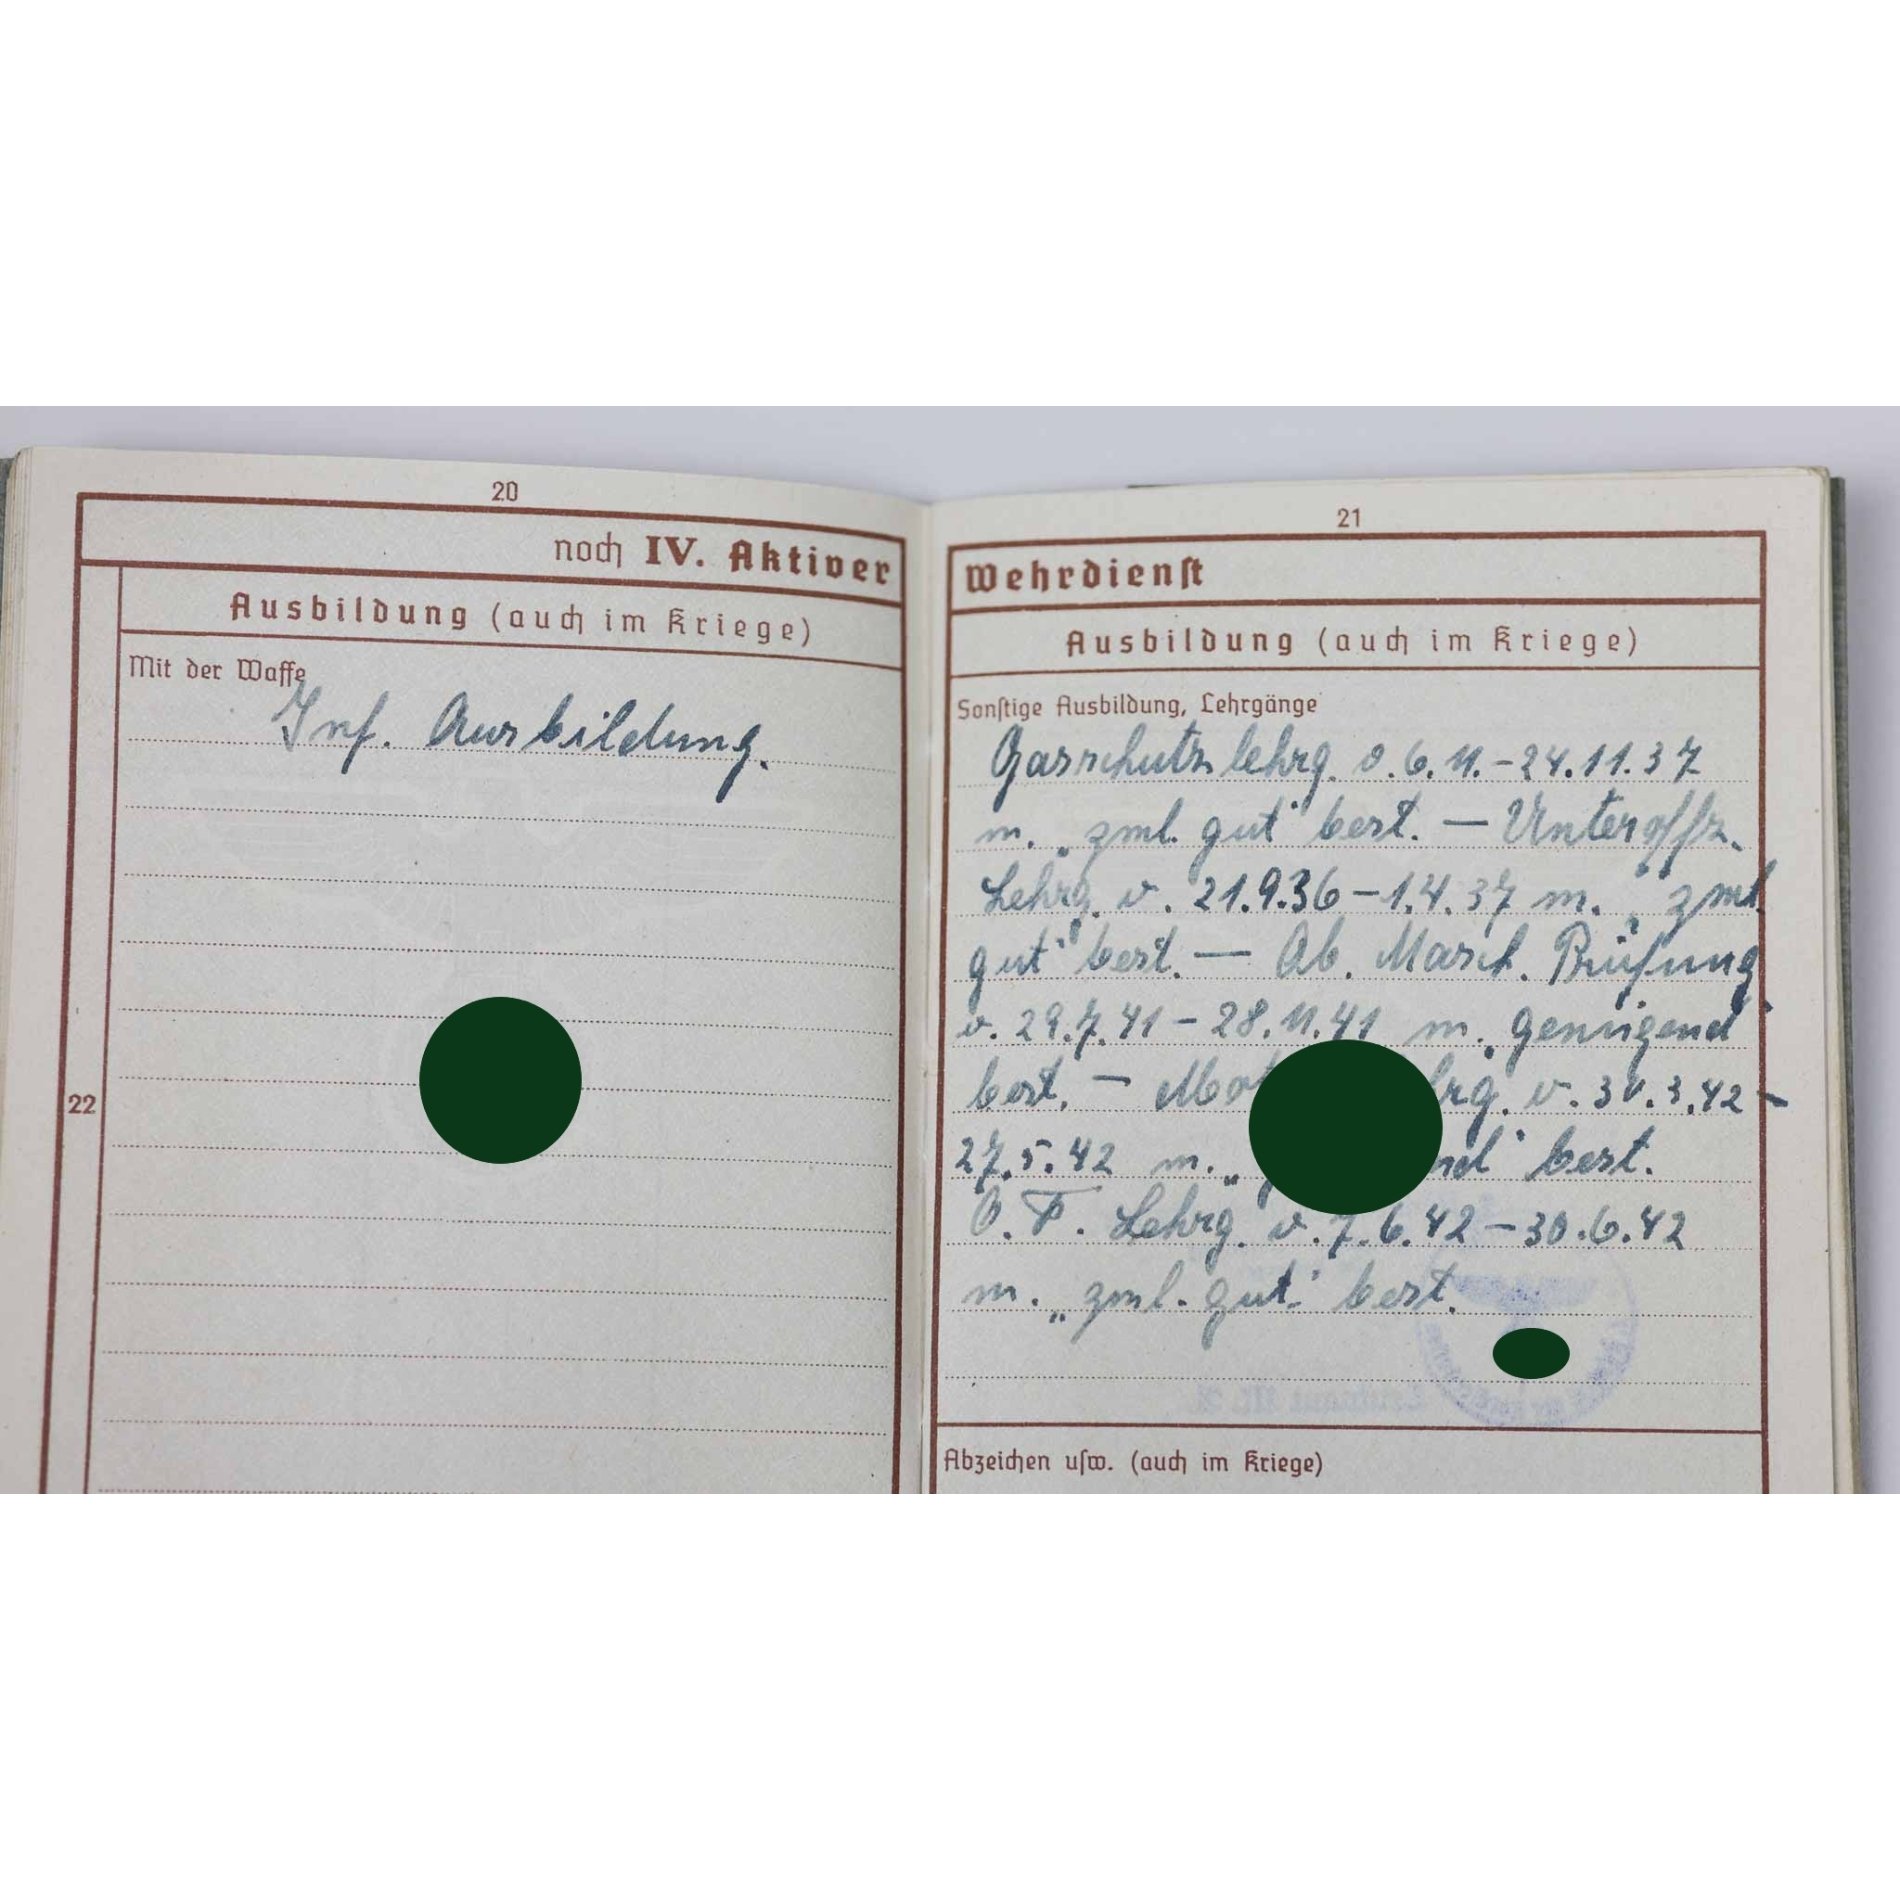 20
noch IV. Aktiver
Ausbildung (auch im Kriege)
Mit der Waffe
Inf. Ausbildung.
22
21
Wehrdienst
Ausbildung (auch im Kriege)
Sonstige Ausbildung, Lehrgänge
Gasschutzlehrg. v. 6.11.-24.11.37
m. „zml. gut" best. — Unteroffz.
Lehrg. v. 21.9.36-1.4.37 m. „zml.
gut" best. — Ob. Masch. Prüfung
v. 29.7.41-28.11.41 m. „genügend"
best. — v. 30.3.42-
27.5.42 m. „ best.
O. F. Lehrg. v. 7.6.42-30.6.42
m. „zml. gut" best.
Abzeichen usw. (auch im Kriege)